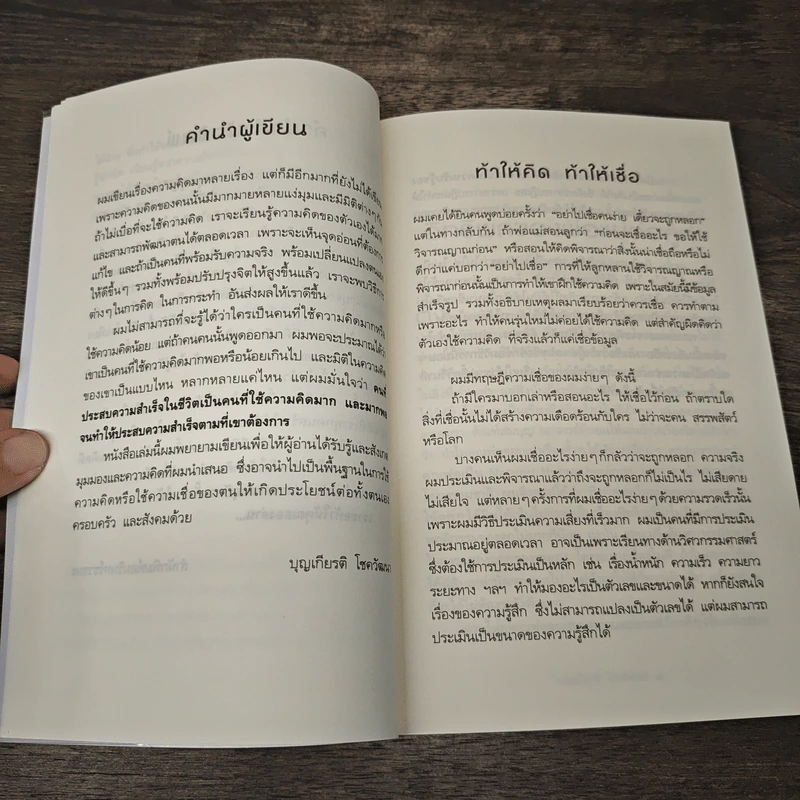 คำนำผู้เขียน
ผมเขียนเรื่องความคิดมาหลายเรื่อง แต่ก็มีอีกมากที่ยังไม่ได้เขียน
เพราะความคิดของคนนั้นมีมากมายหลายแง่มุมและมีมิติต่างๆกัน
ถ้าไม่เบื่อที่จะใช้ความคิด เราจะเรียนรู้ความคิดของตัวเองได้มาก
และสามารถพัฒนาตนได้ตลอดเวลา เพราะจะเห็นจุดอ่อนที่ต้องการ
แก้ไข และถ้าเป็นคนที่พร้อมรับความจริง พร้อมเปลี่ยนแปลงตนเอง
ให้ดีขึ้นๆ รวมทั้งพร้อมปรับปรุงจิตให้สูงขึ้นแล้ว เราจะพบวิธีการ
ต่างๆในการคิด ในการกระทำ อันส่งผลให้เราดีขึ้น
ผมไม่สามารถที่จะรู้ได้ว่าใครเป็นคนที่ใช้ความคิดมากหรือ
ใช้ความคิดน้อย แต่ถ้าคนคนนั้นพูดออกมา ผมพอจะประมาณได้ว่า
เขาเป็นคนที่ใช้ความคิดมากพอหรือน้อยเกินไป และมิติในความคิด
ของเขาเป็นแบบไหน หลากหลายแค่ไหน แต่ผมมั่นใจว่า คนที่
ประสบความสำเร็จในชีวิตเป็นคนที่ใช้ความคิดมาก และมากพอ
จนทำให้ประสบความสำเร็จตามที่เขาต้องการ
หนังสือเล่มนี้ผมพยายามเขียนเพื่อให้ผู้อ่านได้รับรู้และสังเกต
มุมมองและความคิดที่ผมนำเสนอ ซึ่งอาจนำไปเป็นพื้นฐานในการใช้
ความคิดหรือใช้ความเชื่อของตนให้เกิดประโยชน์ต่อทั้งตนเอง
ครอบครัว และสังคมด้วย
บุญเกียรติ โชควัฒนา
ท้าให้คิด ท้าให้เชื่อ
ผมเคยได้ยินคนพูดบ่อยครั้งว่า "อย่าไปเชื่อคนง่าย เดี๋ยวจะถูกหลอก"
แต่ในทางกลับกัน ถ้าพ่อแม่สอนลูกว่า "ก่อนจะเชื่ออะไร ขอให้ใช้
วิจารณญาณก่อน" หรือสอนให้คิดพิจารณาว่าสิ่งนั้นน่าเชื่อถือหรือไม่
ดีกว่าแค่บอกว่า "อย่าไปเชื่อ" การที่ให้ลูกหลานใช้วิจารณญาณหรือ
พิจารณาก่อนนั้นเป็นการทำให้เขาฝึกใช้ความคิด เพราะในสมัยนี้มีข้อมูล
สำเร็จรูป รวมทั้งอธิบายเหตุผลมาเรียบร้อยว่าควรเชื่อ ควรทำตาม
เพราะอะไร ทำให้คนรุ่นใหม่ไม่ค่อยได้ใช้ความคิด แต่สำคัญผิดคิดว่า
ตัวเองใช้ความคิด ที่จริงแล้วก็แค่เชื่อข้อมูล
ผมมีทฤษฎีความเชื่อของผมง่ายๆ ดังนี้
ถ้ามีใครมาบอกเล่าหรือเสนออะไร ให้เชื่อไว้ก่อน ถ้าตราบใด
สิ่งที่เชื่อนั้นไม่ได้สร้างความเดือดร้อนกับใคร ไม่ว่าจะคน สรรพสัตว์
หรือโลก
บางคนเห็นผมเชื่ออะไรง่ายๆก็กลัวว่าจะถูกหลอก ความจริง
ผมประเมินและพิจารณาแล้วว่าถึงจะถูกหลอกก็ไม่เป็นไร ไม่เสียดาย
ไม่เสียใจ แต่หลายๆครั้งการที่ผมเชื่ออะไรง่ายๆด้วยความรวดเร็วนั้น
เพราะผมมีวิธีประเมินความเสี่ยงที่เร็วมาก ผมเป็นคนที่มีการประเมิน
ประมาณอยู่ตลอดเวลา อาจเป็นเพราะเรียนทางด้านวิศวกรรมศาสตร์
ซึ่งต้องใช้การประเมินเป็นหลัก เช่น เรื่องน้ำหนัก ความเร็ว ความยาว
ระยะทาง ฯลฯ ทำให้มองอะไรเป็นตัวเลขและขนาดได้ หากก็ยังสนใจ
เรื่องของความรู้สึก ซึ่งไม่สามารถแปลงเป็นตัวเลขได้ แต่ผมสามารถ
ประเมินเป็นขนาดของความรู้สึกได้